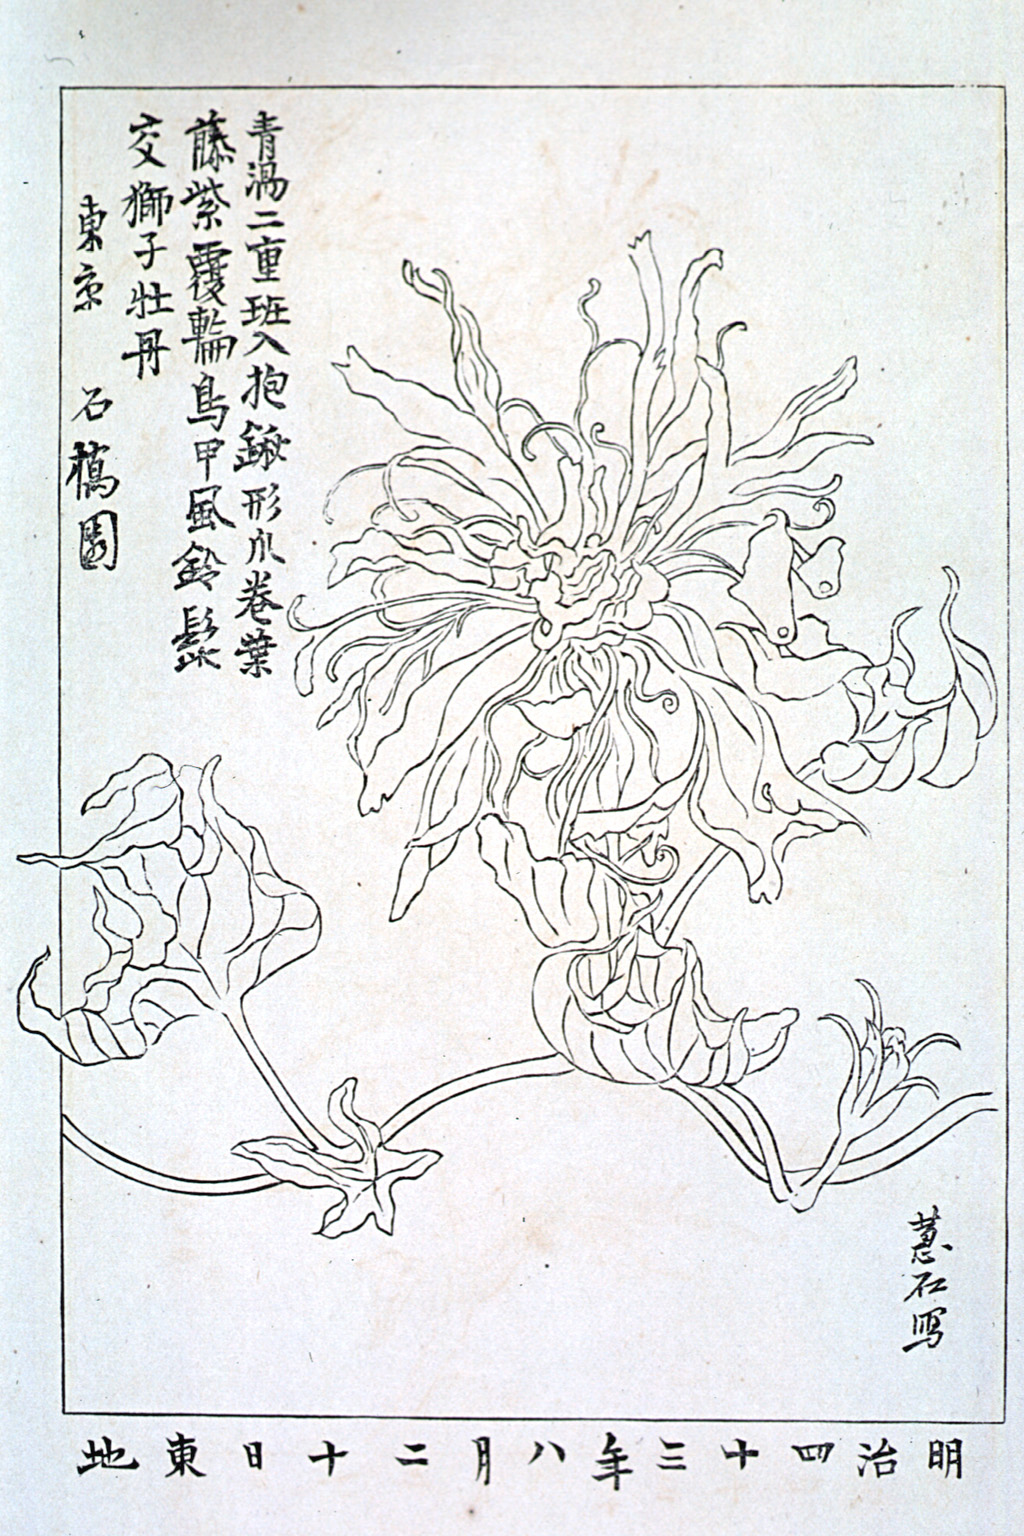 青渦二重班入抱鍬形爪卷葉
藤紫覆輪鳥甲風鈴髭
交獅子牡丹
東京 石橋園
蕙石写
明治四十三年八月二十日東地